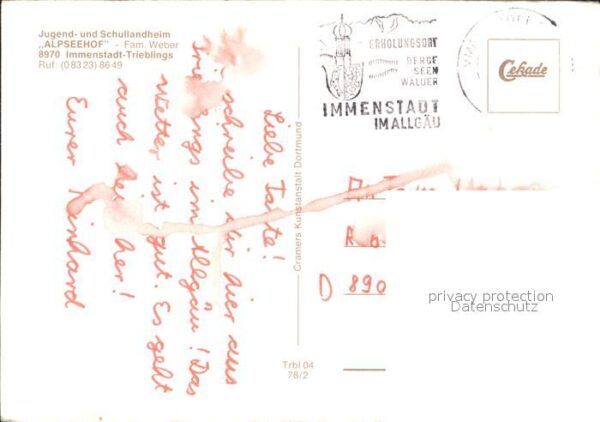 Jugend- und Schullandheim
„ALPSEEHOF" - Fam. Weber
8970 Immenstadt-Trieblings
Ruf: (0 83 23) 86 49
ERHOLUNGSORT
BERGE
SEEN
WÄLDER
IMMENSTADT
IM ALLGÄU
Cekade
Liebe Tante!
schreibe dir hier aus
im Allgäu! Das
Wetter ist gut. Es geht
auch her!
Eurer Reinhard
Cramers Kunstanstalt Dortmund
D 890
privacy protection
Datenschutz
Trbl 04
78/2